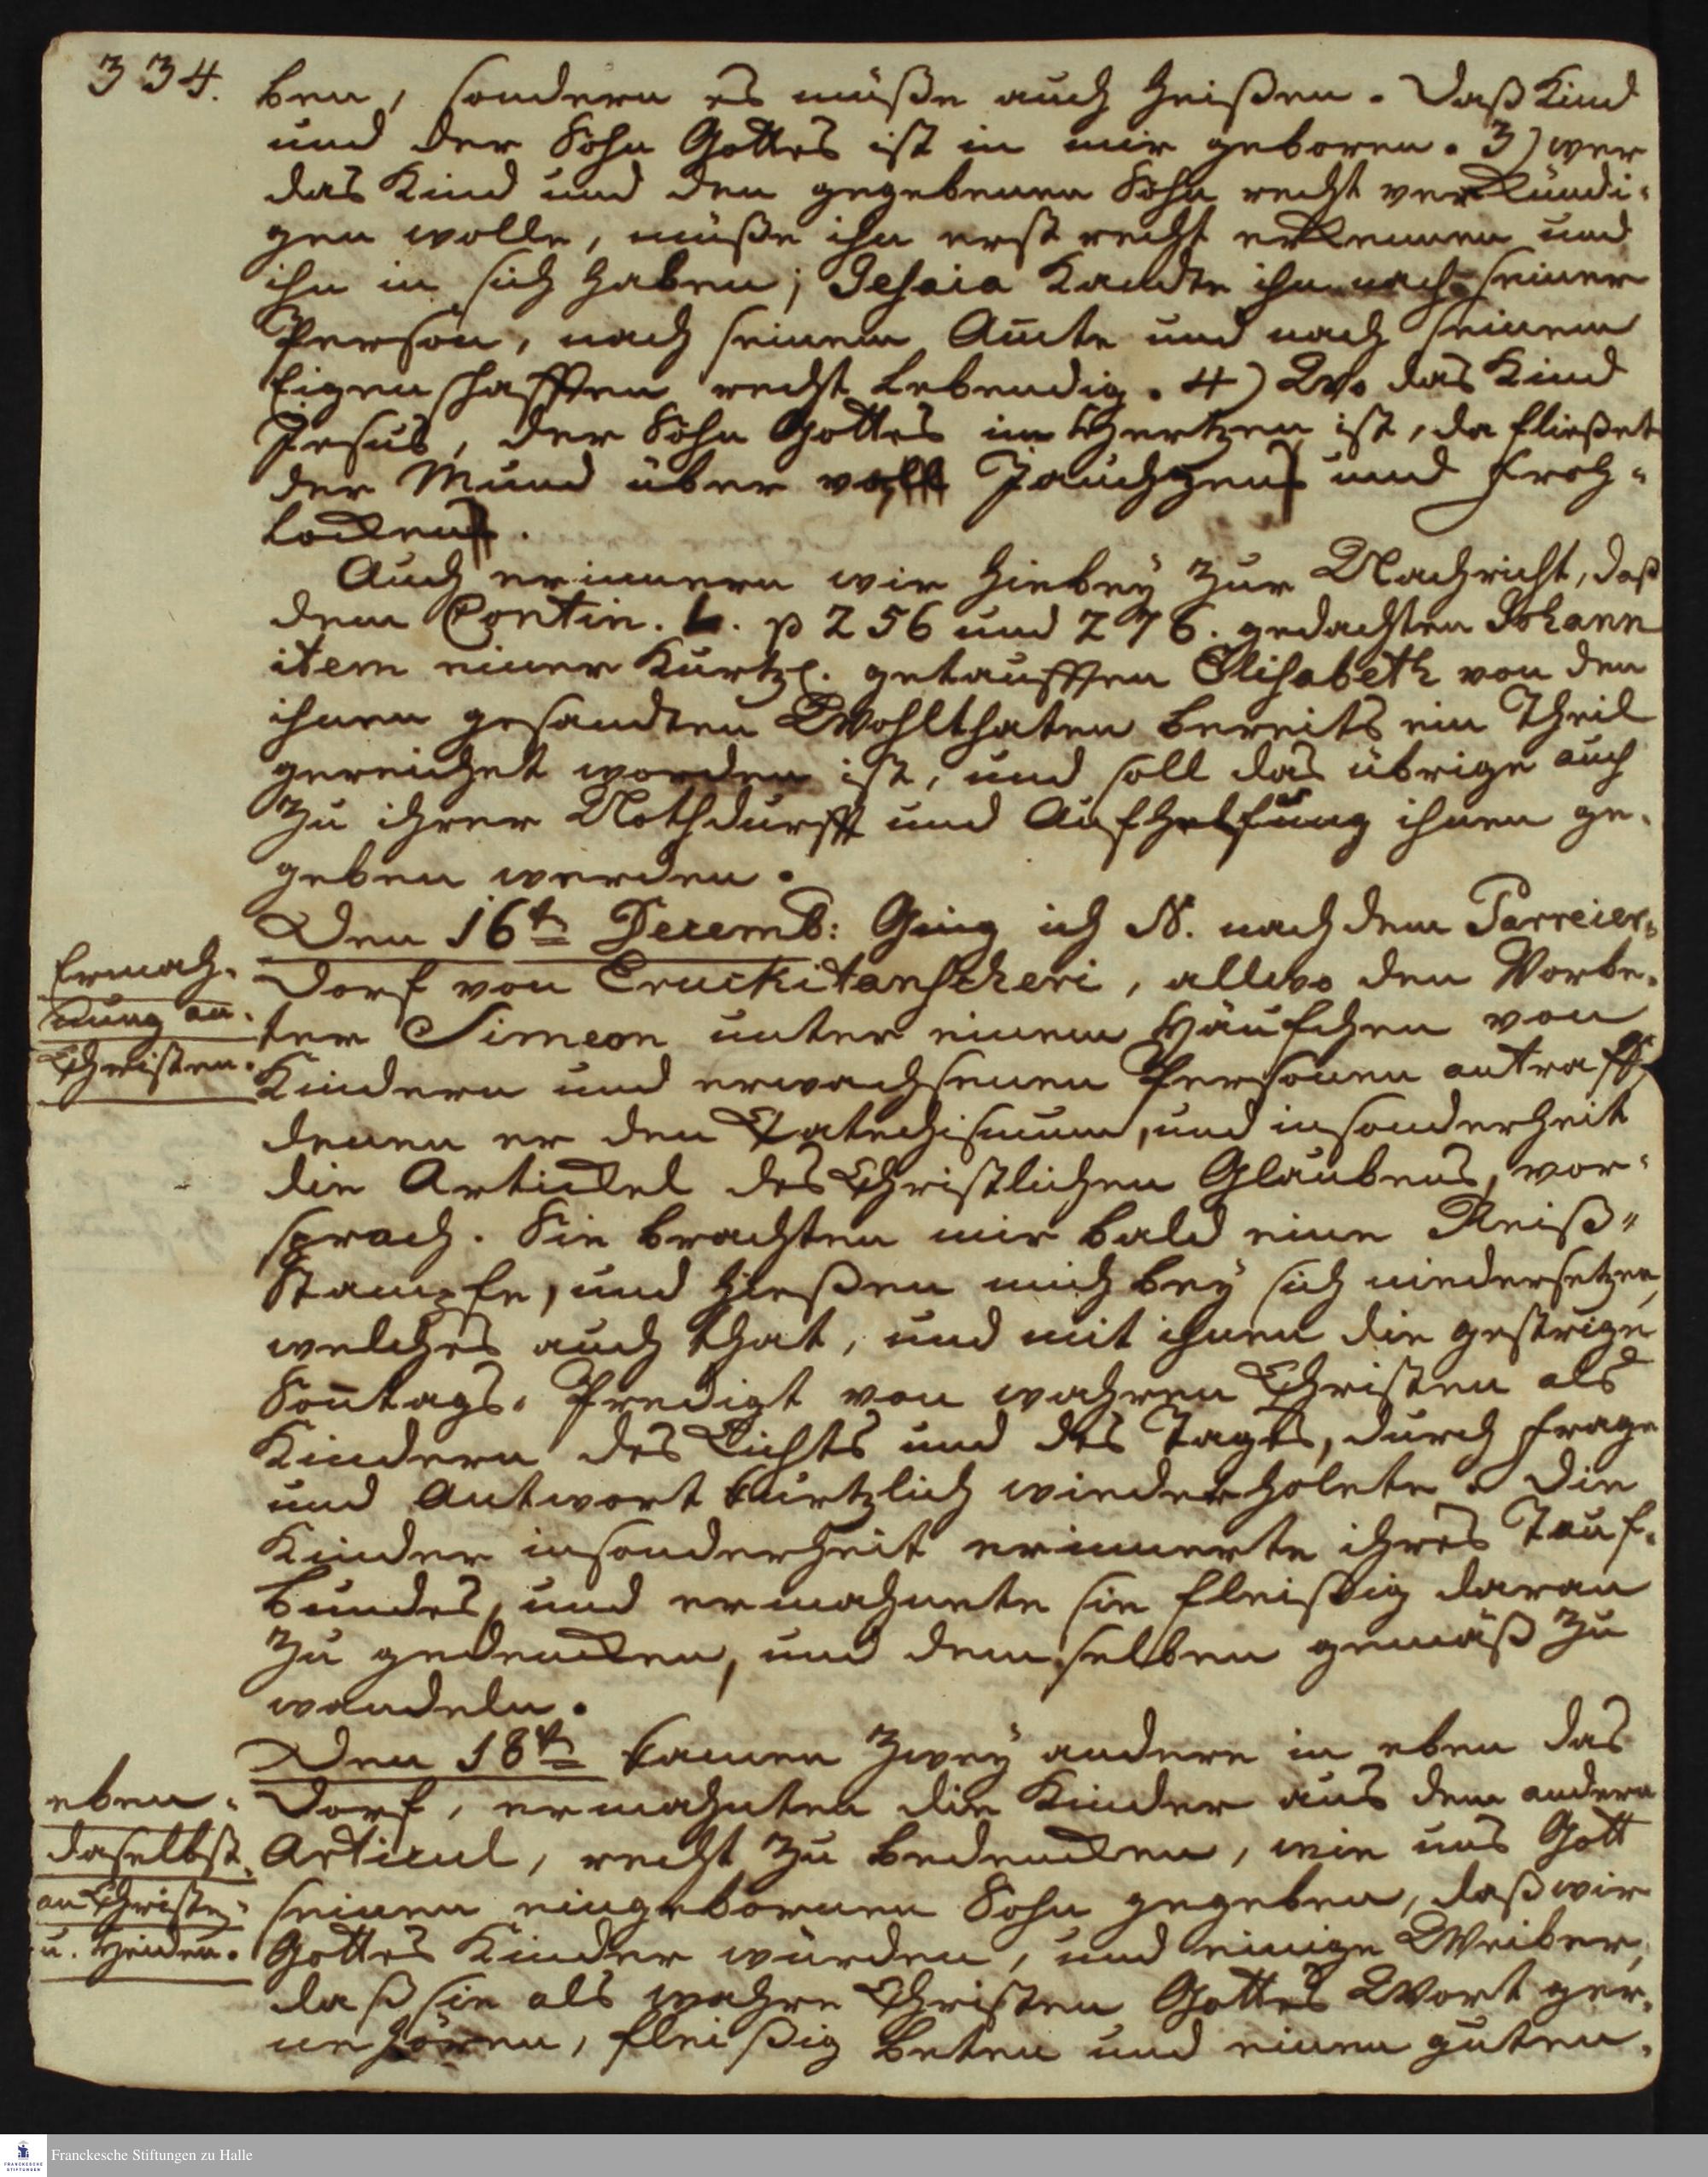 334.
ben, sondern es müße auch heißen. Daß Kind
und der Sohn Gottes ist in mir geboren. 3) wer
das Kind und den gegebenen Sohn recht verkündi-
gen wolle, müße ihn erst recht erkennen und
ihn in sich haben; Jesaia kandte ihn nach seiner
Person, nach seinem Amte und nach seinem
Eigenschafften recht lebendig. 4) Wo das Kind
Jesus, der Sohn Gottes im Hertzen ist, da fließet
der Mund über Jauchzen und Froh-
locken.
Auch erinnern wir hiebey zur Nachricht, daß
dem Contin. p 256 und 276. gedachten Johann
item einer kurtzl. getaufften Elisabeth von den
ihnen gesandten Wohlthaten bereits ein Theil
gereichet worden ist, und soll das übrige auch
zu ihrer Nothdurfft und Aufhelfung ihnen ge-
geben werden.
Den 16t. Decemb: Ging ich N. nach dem Parreier-
Ermah-
nung an
Christen.
Dorf von Cruckitanscheri, allwo den Vorbe-
ter Simeon unter einem Häufchen von
Kindern und erwachsenen Personen antraff,
denen er den Catechismum, und insonderheit
die Artickel des Christlichen Glaubens, vor-
sprach. Sie brachten mir bald eine Reiß-
Stampfe, und hießen mich bey sich niedersetzen,
welches auch that, und mit ihnen die gestrige
Sontags-Predigt von wahren Christen als
Kindern des Lichts und des Tages, durch Frage
und Antwort kürtzlich wiederholete. Die
Kinder insonderheit erinnerte ihres Tauf-
bundes, und ermahnete sie fleißig daran
zu gedencken, und demselben gemäß zu
wandeln.
Den 18t. kamen zwey andere in eben das
eben-
daselbst
an Christen
u. Heiden.
Dorf, ermahnten die Kinder aus dem andern
Articul, recht zu bedencken, wie uns Gott
seinen eingebornen Sohn gegeben, daß wir
Gottes Kinder würden, und einige Weiber,
daß sie als wahre Christen Gottes Wort ger-
ne hören, fleißig beten und einen guten
Franckesche Stiftungen zu Halle
FRANCKESCHE STIFTUNGEN